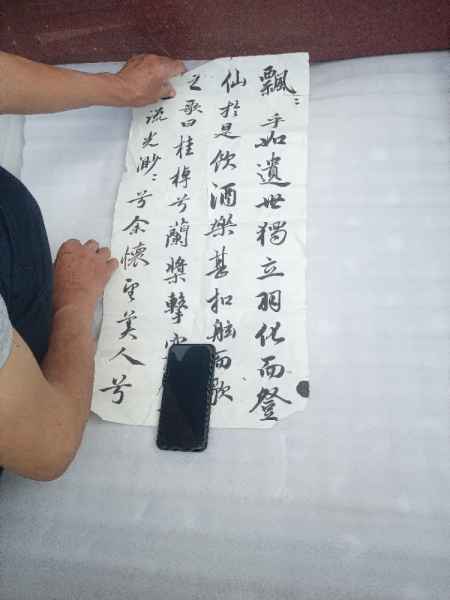 飄〻乎如遺世獨立羽化而登
仙於是飲酒樂甚扣舷而歌
之歌曰桂棹兮蘭槳擊空
流光渺〻兮余懷望美人兮